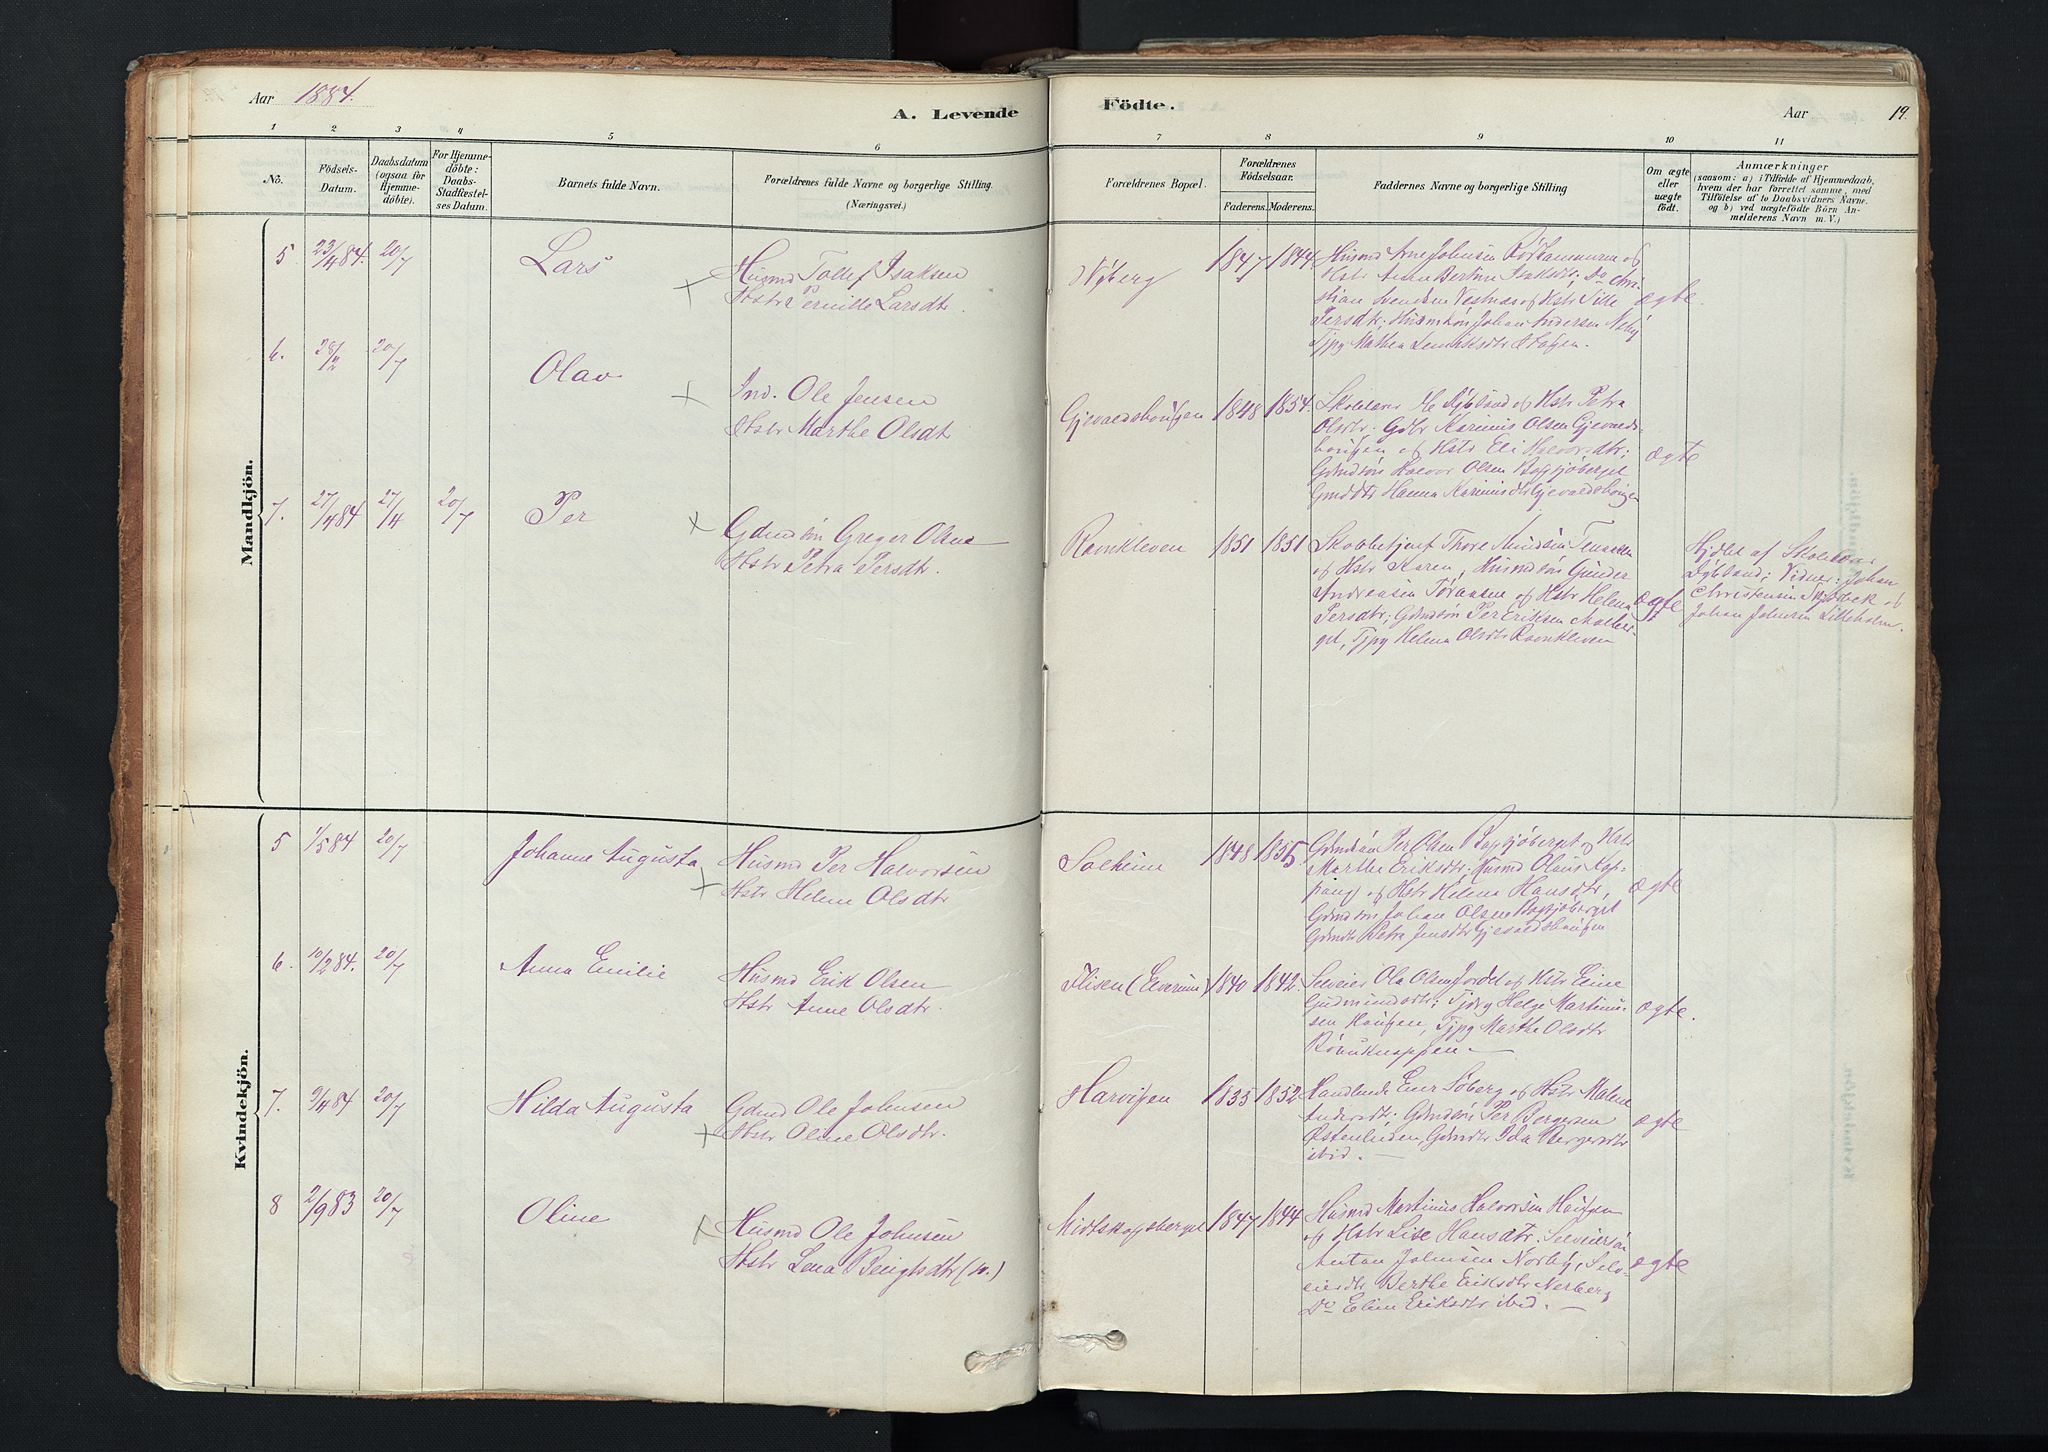 Aar 1884.
A. Levende
Födte.
Aar
19.
1 2 3 4 5 6 7 8 9 10 11
No.
Födsels-
Datum.
Daabsdatum
(ogsaa for
Hjemme-
döbte).
For Hjemme-
döbte:
Daabs-
Stadfæstel-
ses Datum.
Barnets fulde Navn.
Forældrenes fulde Navne og borgerlige Stilling
(Næringsvei.)
Forældrenes Bopæl.
Forældrenes
Födselsaar.
Faderens. Moderens.
Faddernes Navne og borgerlige Stilling
Om ægte
eller
uægte
födt.
Anmærkninger
(saasom: a) i Tilfælde af Hjemmedaab,
hvem der har forrettet samme, med
Tilföielse af to Daabsvidners Navne.
og b) ved uægtefödte Börn An-
melderens Navn m. V.)
Mandkjön.
5 23/4 84. 20/7 Lars
Husmd Tollef Isaksen
Hstr Pernille Larsdtr.
Nyberg 1847 1844
Husmd Arne Johnsen
Hstr Anne Bertine Isaksdtr; Do Chri-
stian Svendsen Vestnæs og Hstr Sille
Persdtr; Husmdsön Johan Andersen
Tjpg Mathea
ægte.
6. 28/2 20/7 Olav
Ind. Ole Jensen
Hstr Marthe Olsdtr
Gjevaldshaugen 1848 1854.
Skolelærer Ole Dybland og Hstr Petra
Olsdtr. Gdbr Karinus Olsen Gjevalds-
haugen og Hstr Eli Halvorsdtr;
Gdmdsön Halvor Olsen Bagsjöberget
Gmddtr Hanna Karinusdtr Gjevaldshaugen
ægte
7. 27/4 84 27/4 20/7 Per
Gdmdsön Greger Olsen
Hstr Petra Persdtr.
Ravnkleven 1851 1851
Thore Knudsen
og Hstr Karen, Husmdsön Gunder
Andreassen og Hstr Helene
Persdtr; Gdmdsön Per Eriksen
Tjpg Helena Olsdtr Ravnkleven
ægte
Hjdbt af Skolelærer
Dybland; Vidner: Johan
Christensen og
Johan Johnsen Lilleholm.
Kvindekjön.
5 1/5 84 20/7 Johanne Augusta
Husmd Per Halvorsen
Hstr Helene Olsdtr
Solheim 1848 1855.
Gdmdsön Per Olsen Bagsjöberget og Hstr
Marthe Eriksdtr. Husmd Olaus Kop-
pang og Hstr Helene Hansdtr,
Gdmdsön Johan Olsen Bagsjöberget
Gdmdtr Petra Jensdtr Gjevaldshaugen
ægte
6. 10/2 84. 20/7 Anna Emilie
Husmd Erik Olsen
Hstr Anne Olsdtr.
Flisen (Elverum) 1840 1842.
Selveier Ola Olsen Jordet og Hstr Eline
Gudmundsdtr; Tjdrg Helge Martinus-
sen Haugen, Tjpg Marthe Olsdtr
ægte.
7. 9/4 84 20/7 Hilda Augusta
Gdmd Ole Johnsen
Hstr Oline Olsdtr.
Harvigen 1835 1852
Handlende Einer Söberg og Hstr Malene
Andersdtr; Gdmdsön Per Bergersen
Østenlieden, Gdmdtr Ida Bergersdtr
ibid. —
ægte
8 2/9 83 20/7 Oline
Husmd Ole Johnsen
Hstr Lena Bengtsdtr
Midtskogsberget 1847 1844
Husmd Martinus Halvorsen Haugen
og Hstr Lise Hansdtr. Selveiersön
Anton Johnsen Norby, Selv-
eierdtr Berthe Eriksdtr Norberg
Do Eline Eriksdtr ibid. —
ægte